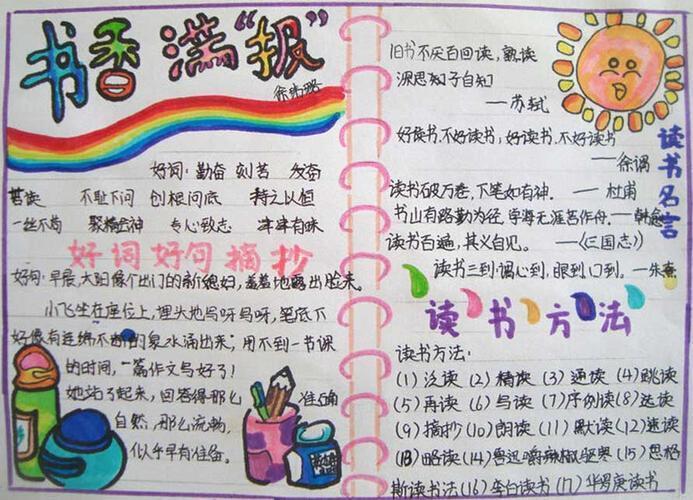 书香满“报”
好词：勤奋 刻苦 发奋
苦读 不耻下问 创根问底 持之以恒
一丝不苟 聚精会神 专心致志 津津有味
好词好句摘抄
好句：早晨，太阳像个出门的新媳妇，羞羞地露出脸来。
小飞坐在座位上，埋头地写呀写呀，笔底下
好像有连绵不断的泉水涌出来；用不到一节课
的时间，一篇作文写好了！
她站了起来，回答得那么准确
自然，那么流畅，
似乎早有准备。
旧书不厌百回读，熟读
深思知子自知
—苏轼
好读书，不好读书；好读书，不好读书
—徐渭
读书破万卷，下笔如有神。—杜甫
书山有路勤为径，学海无涯苦作舟。—韩愈
读书百遍，其义自见。—《三国志》
读书三到：谓心到，眼到，口到。—朱熹
读书名言
读书方法
读书方法：
(1)泛读 (2)精读 (3)通读 (4)跳读
(5)再读 (6)写读 (7)序例读 (8)选读
(9)摘抄 (10)朗读 (11)默读 (12)速读
(13)略读 (14)鲁迅嚼辣椒驱寒 (15)恩格
斯读书法 (16)李白读书 (17)华罗庚读书